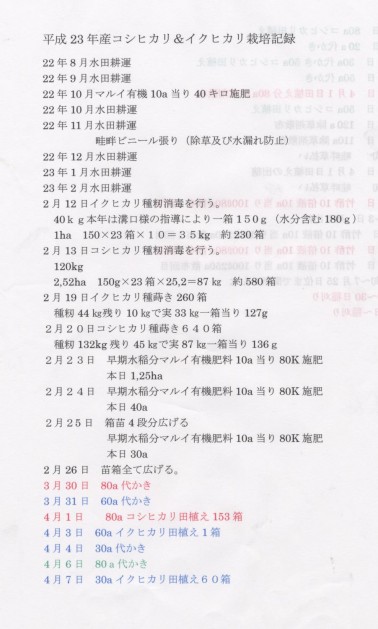 平成 23 年産コシヒカリ＆イクヒカリ栽培記録
22 年 8 月水田耕運
22 年 9 月水田耕運
22 年 10 月マルイ有機 10a 当り 40 キロ施肥
22 年 10 月水田耕運
22 年 11 月水田耕運
畦畔ビニール張り（除草及び水漏れ防止）
22 年 12 月水田耕運
23 年 1 月水田耕運
23 年 2 月水田耕運
2 月 12 日イクヒカリ種籾消毒を行う。
40ｋｇ本年は溝口様の指導により一箱 1５0ｇ（水分含む 180ｇ）
1ha　150×23 箱×１０＝３５kg　約 230 箱
2 月 13 日コシヒカリ種籾消毒を行う。
120kg
2,52ha　150g×23 箱×25,2＝87 ㎏　約 580 箱
2 月 19 日イクヒカリ種蒔き 260 箱
種籾 44 ㎏残り 10 ㎏で実 33 ㎏一箱当り 127g
2 月２０日コシヒカリ種蒔き６４０箱
種籾 132kg 残り 45 ㎏で実 87 ㎏一箱当り 136ｇ
２月２３日　早期水稲分マルイ有機肥料 10a 当り 80K 施肥
本日 1,25ha
２月２４日　早期水稲分マルイ有機肥料 10a 当り 80K 施肥
本日 40a
２月２５日　箱苗 4 段分広げる
早期水稲分マルイ有機肥料 10a 当り 80K 施肥
本日 30a
2 月 26 日　苗箱全て広げる。
3 月 30 日　80a 代かき
3 月 31 日　60a 代かき
4 月 1 日　80a コシヒカリ田植え 153 箱
4 月 3 日　60a イクヒカリ田植え１箱
4 月 4 日　30a 代かき
4 月 6 日　80ａ代かき
4 月 7 日　30a イクヒカリ田植え６０箱